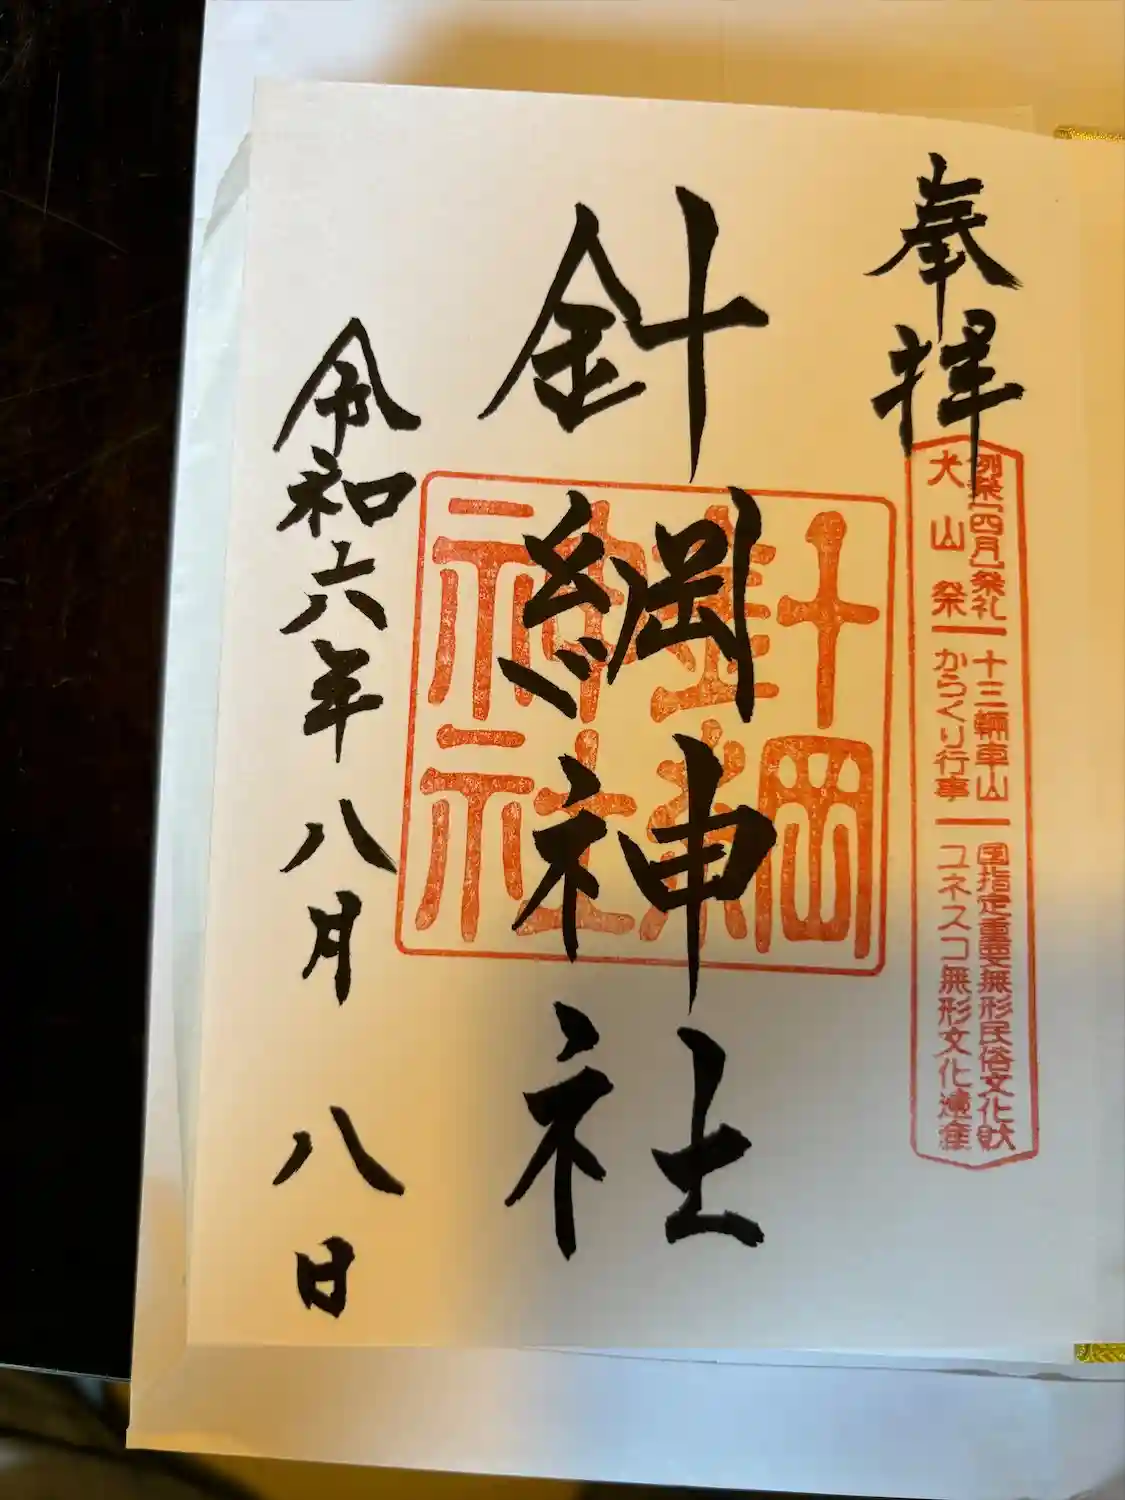 奉拝
例祭「四月」祭礼 十三輛車山 国指定重要無形民俗文化財
犬山祭 からくり行事 ユネスコ無形文化遺産
針綱神社
針綱
神社
令和六年八月八日